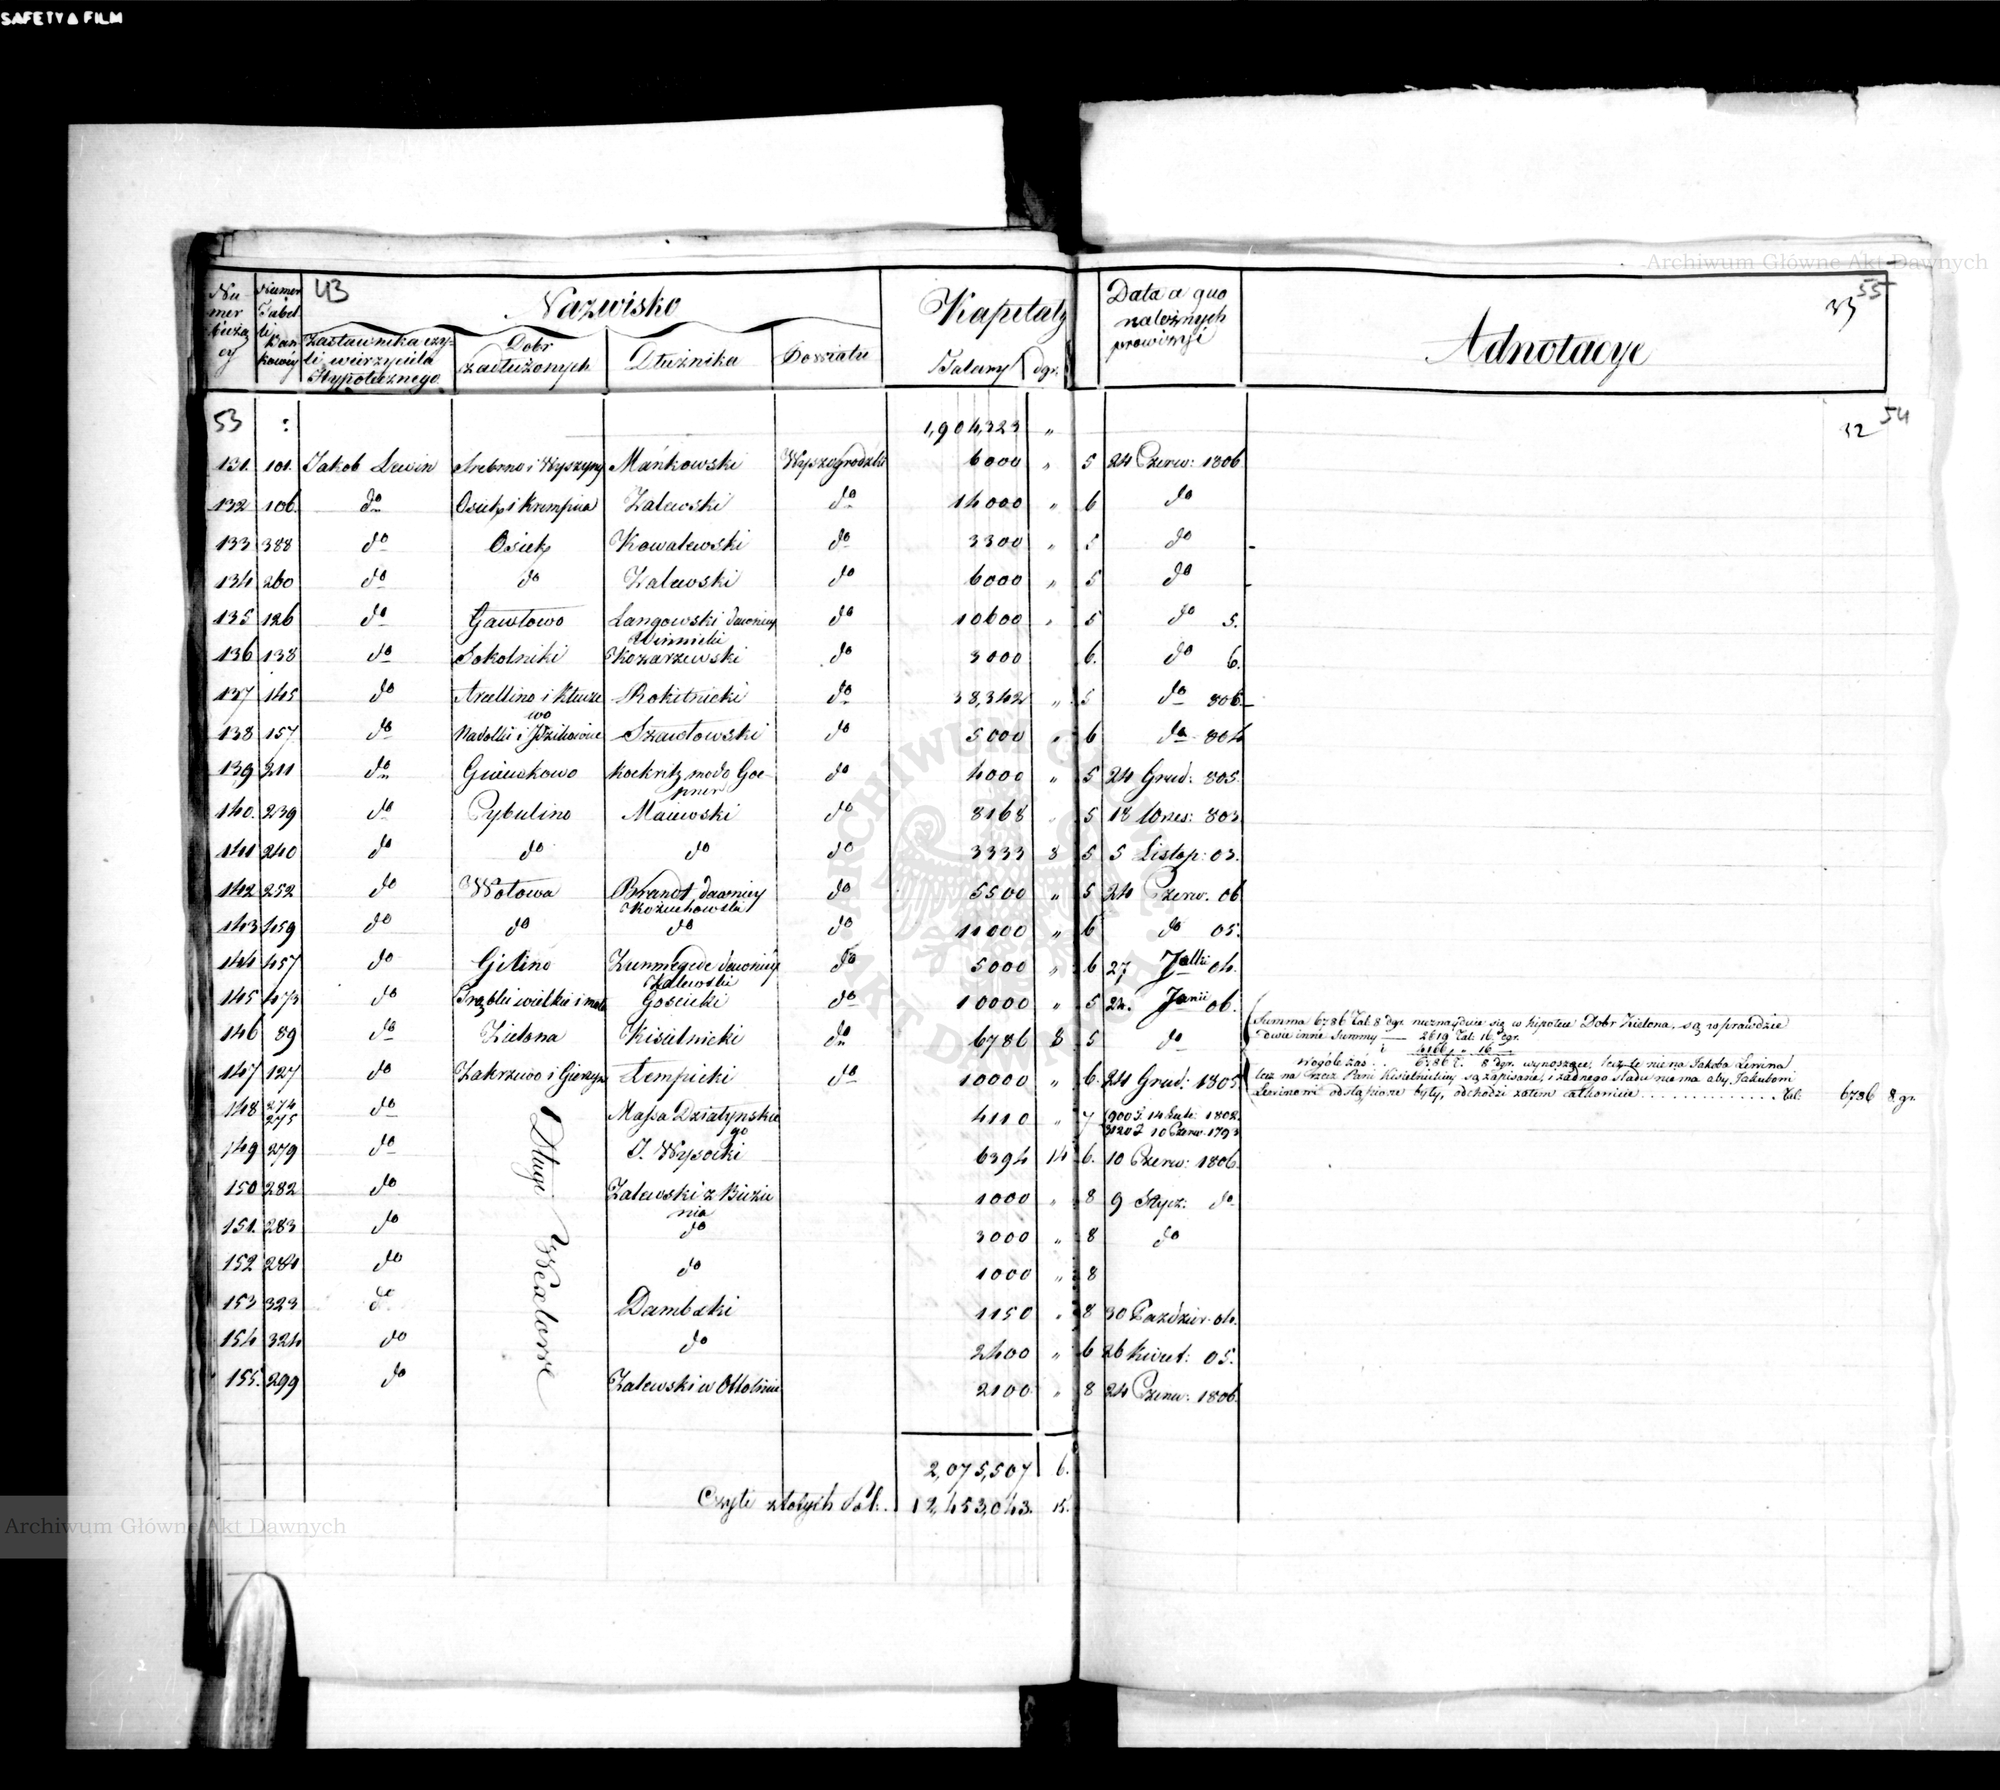 SAFETY FILM
Archiwum Główne Akt Dawnych
43
55
33
Numer bieżący
Numer Tabelli Bankowéy
Nazwisko
Kapitały
Data a quo należnych prowizyi
Adnotacye
Zastawnika czyli wierzyciela Hypotecznego
Dobr zadłużonych
Dłużnika
Powiatu
Talary dgr.
53 : 1,904,323 "
54
52
131. 101. Jakob Lewin Srebrna i Wyszyny Mańkowski Wyszogrodzki 6000 " 5 24 Czerw: 1806
132 106. do Osiek i Krempica Zalewski do 14000 " 6 do
133 388 do Osiek Kowalewski do 3300 " 5 do
134 260 do do Zalewski do 6000 " 5 do
135 126 do Gawłowo Langowski dawniey Winnicki do 10600 " 5 do 5.
136 138 do Sokolniki Kozarzewski do 3000 6. do 6.
137 145 do Arcellino i Kluczewo Rokitnicki do 38,342 " 5 do 806
138 157 do Nadolki i Jdzikowice Szawłowski do 5000 " 6 do 804
139 211 do Gniewkowo Kockritz modo Goepner do 4000 " 5 24 Grud: 805.
140. 239 do Cybulino Maiewski do 8168 " 5 18 Wrześ: 803
141 240 do do do do 3333 8 5 5 Listop: 03.
142 252 do Wołowa Brandt dawniey Kożuchowski do 5500 " 5 24 Czerw. 06
143 459 do do do do 11000 " 6 do 05.
144 457 do Gilino Zunmegede dawniey Zalewski do 5000 " 6 27 Julii 04.
145 473 do Grąbki wielkie i małe Gościcki do 10000 " 5 24. Junii 06.
146 89 do Zielona Kisielnicki do 6786 8 5 do
Summa 6786 Tal. 8 dgr. nieznayduie się w hipotece Dobr Zielona, są wprawdzie
dwie inne Summy — 2619 Tal: 16 dgr.
i 4166 " 16
wogóle zaś 6786 T. 8 dgr. wynoszące, lecz te nie na Jakoba Lewina
lecz na rzecz Pani Kisielnickiey są zapisane, i żadnego śladu nie ma aby Jakubowi
Lewinowi odstąpione były, odchodzi zatem całkowicie . . . . . . . . . . . . . . Tal: 6786 8. gr.
147 127 do Zakrzewo i Gierzyn Łempicki do 10000 " 6. 24 Grud: 1805
148 274 275 do Massa Działyńskiego 4110 " 7 900 T. 14 Lute: 1802. 3120 T 10 Czerw. 1793
149 279 do J. Wysocki 6394 14 6. 10 Czerw: 1806.
150 282 do Zalewski z Biezienia 1000 " 8 9 Stycz: do
151. 283 do do 3000 " 8 do
152 284 do do 1000 " 8
153 323 do Dambski 1150 " 8 30 Paździer. 04.
154 324 do do 2400 " 6 26 Kwiet: 05.
155. 299 do Zalewski w Ottolinie 2100 " 8 24 Czerw: 1806.
Długi Wexlowe
2,075,507 6.
Czyli złotych Pol: 12,453,043. 15.
Archiwum Główne Akt Dawnych
ARCHIWUM GŁÓWNE AKT DAWNYCH